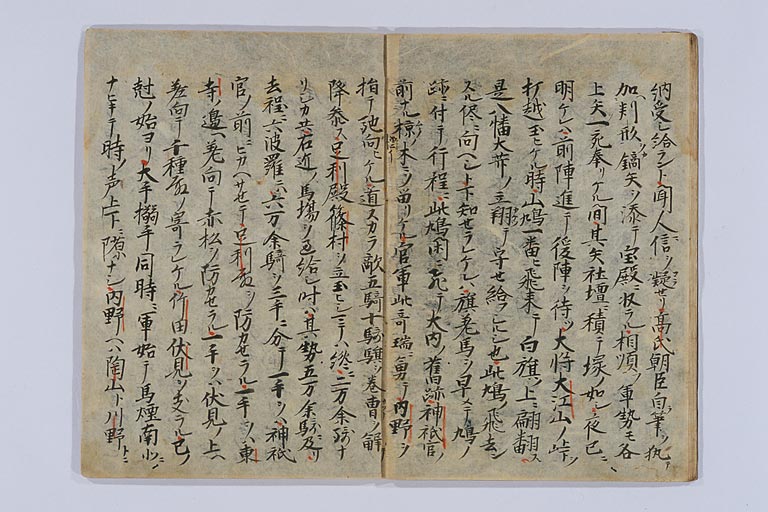 納受シ給ラント聞人信ノ疑セリ高氏朝臣自筆ヲ執テ
加判形ヲ鏑矢ヲ添テ宝殿ニ収ラル相順フ軍勢モ各
上矢一充奉リケル間其矢社壇ニ積テ塚ノ如シ夜已ニ
明ケレハ前陣進テ後陣ヲ待ツ大将大江山ノ峠ヲ
打越玉ヒケル時山鳩一番ヒ飛来テ白旗ノ上ニ翩翻ス
是八幡大菩ノ立翔テ守セ給フヒシ也此鳩ノ飛去ン
スル侭ニ向ヘシト下知セラレケレハ旗差馬ヲ早メテ鳩ノ
跡ニ付テ行程ニ此鳩閑ニ飛テ大内ノ舊跡神祇官ノ
前ナル椋ノ木ニソ留リケル官軍此奇瑞ニ勇テ内野ヲ
指テ馳向ヒケル道スカラ敵五騎十騎旗ヲ巻曹ヲ解
降参ス足利殿篠村ヲ立玉ヒシマテハ纔ニ二万余騎ナ
リシカ共右近ノ馬場ヲ過給シ時ハ其勢五万余騎及リ
去程ニ六波羅ニハ六万余騎ヲ三手ニ分テ一手ヲハ神祇
官ノ前ニヒカヘサセテ足利殿ヲ防カセラル一手ヲハ東
寺ノ邊ヘ差向テ赤松ヲ防カセラル一手ヲハ伏見ノ上ヘ
差向テ千種殿ノ寄ラレケル竹田伏見ヲ支ラル巳ノ
尅ノ始ヨリ大手搦手同時ニ軍始テ馬煙南北ニ
ナヒキテ時ノ声上下ニ隙ナシ内野ヘハ陶山ト川野トニ